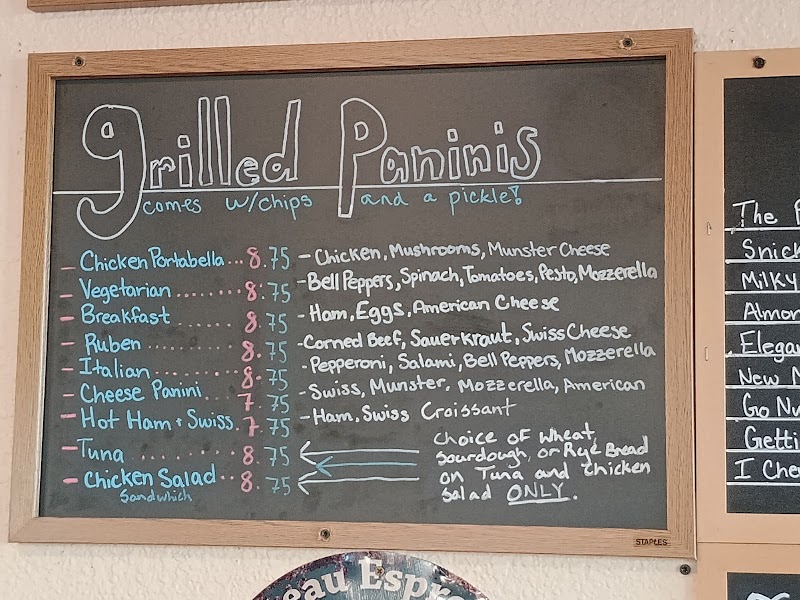 grilled Paninis
comes w/chips and a pickle!
- Chicken Portabella... 8.75 - Chicken, Mushrooms, Munster Cheese
- Vegetarian ...... 8.75 - Bell Peppers, Spinach, Tomatoes, Pesto, Mozzerella
- Breakfast ...... 8.75 - Ham, Eggs, American Cheese
- Ruben ....... 8.75 - Corned Beef, Sauerkraut, Swiss Cheese
- Italian ........ 8.75 - Pepperoni, Salami, Bell Peppers, Mozzerella
- Cheese Panini .... 7.75 - Swiss, Munster, Mozzerella, American
- Hot Ham + Swiss. 7.75 - Ham, Swiss Croissant
- Tuna ......... 8.75
- Chicken Salad .. 8.75
Sandwhich
Choice of Wheat,
Sourdough, or Rye Bread
on Tuna and Chicken
Salad ONLY.
STAPLES
The
Snick
Milky
Almon
Elegan
New
Go Nu
Getti
I Che
eau Espre